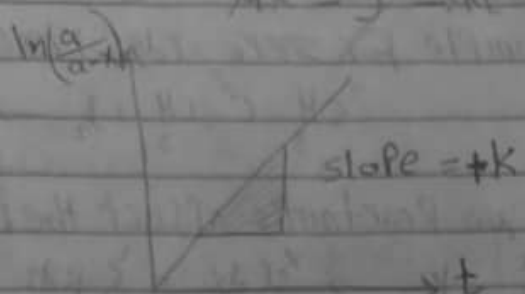 ln(a/a-x)
slope = +K
t